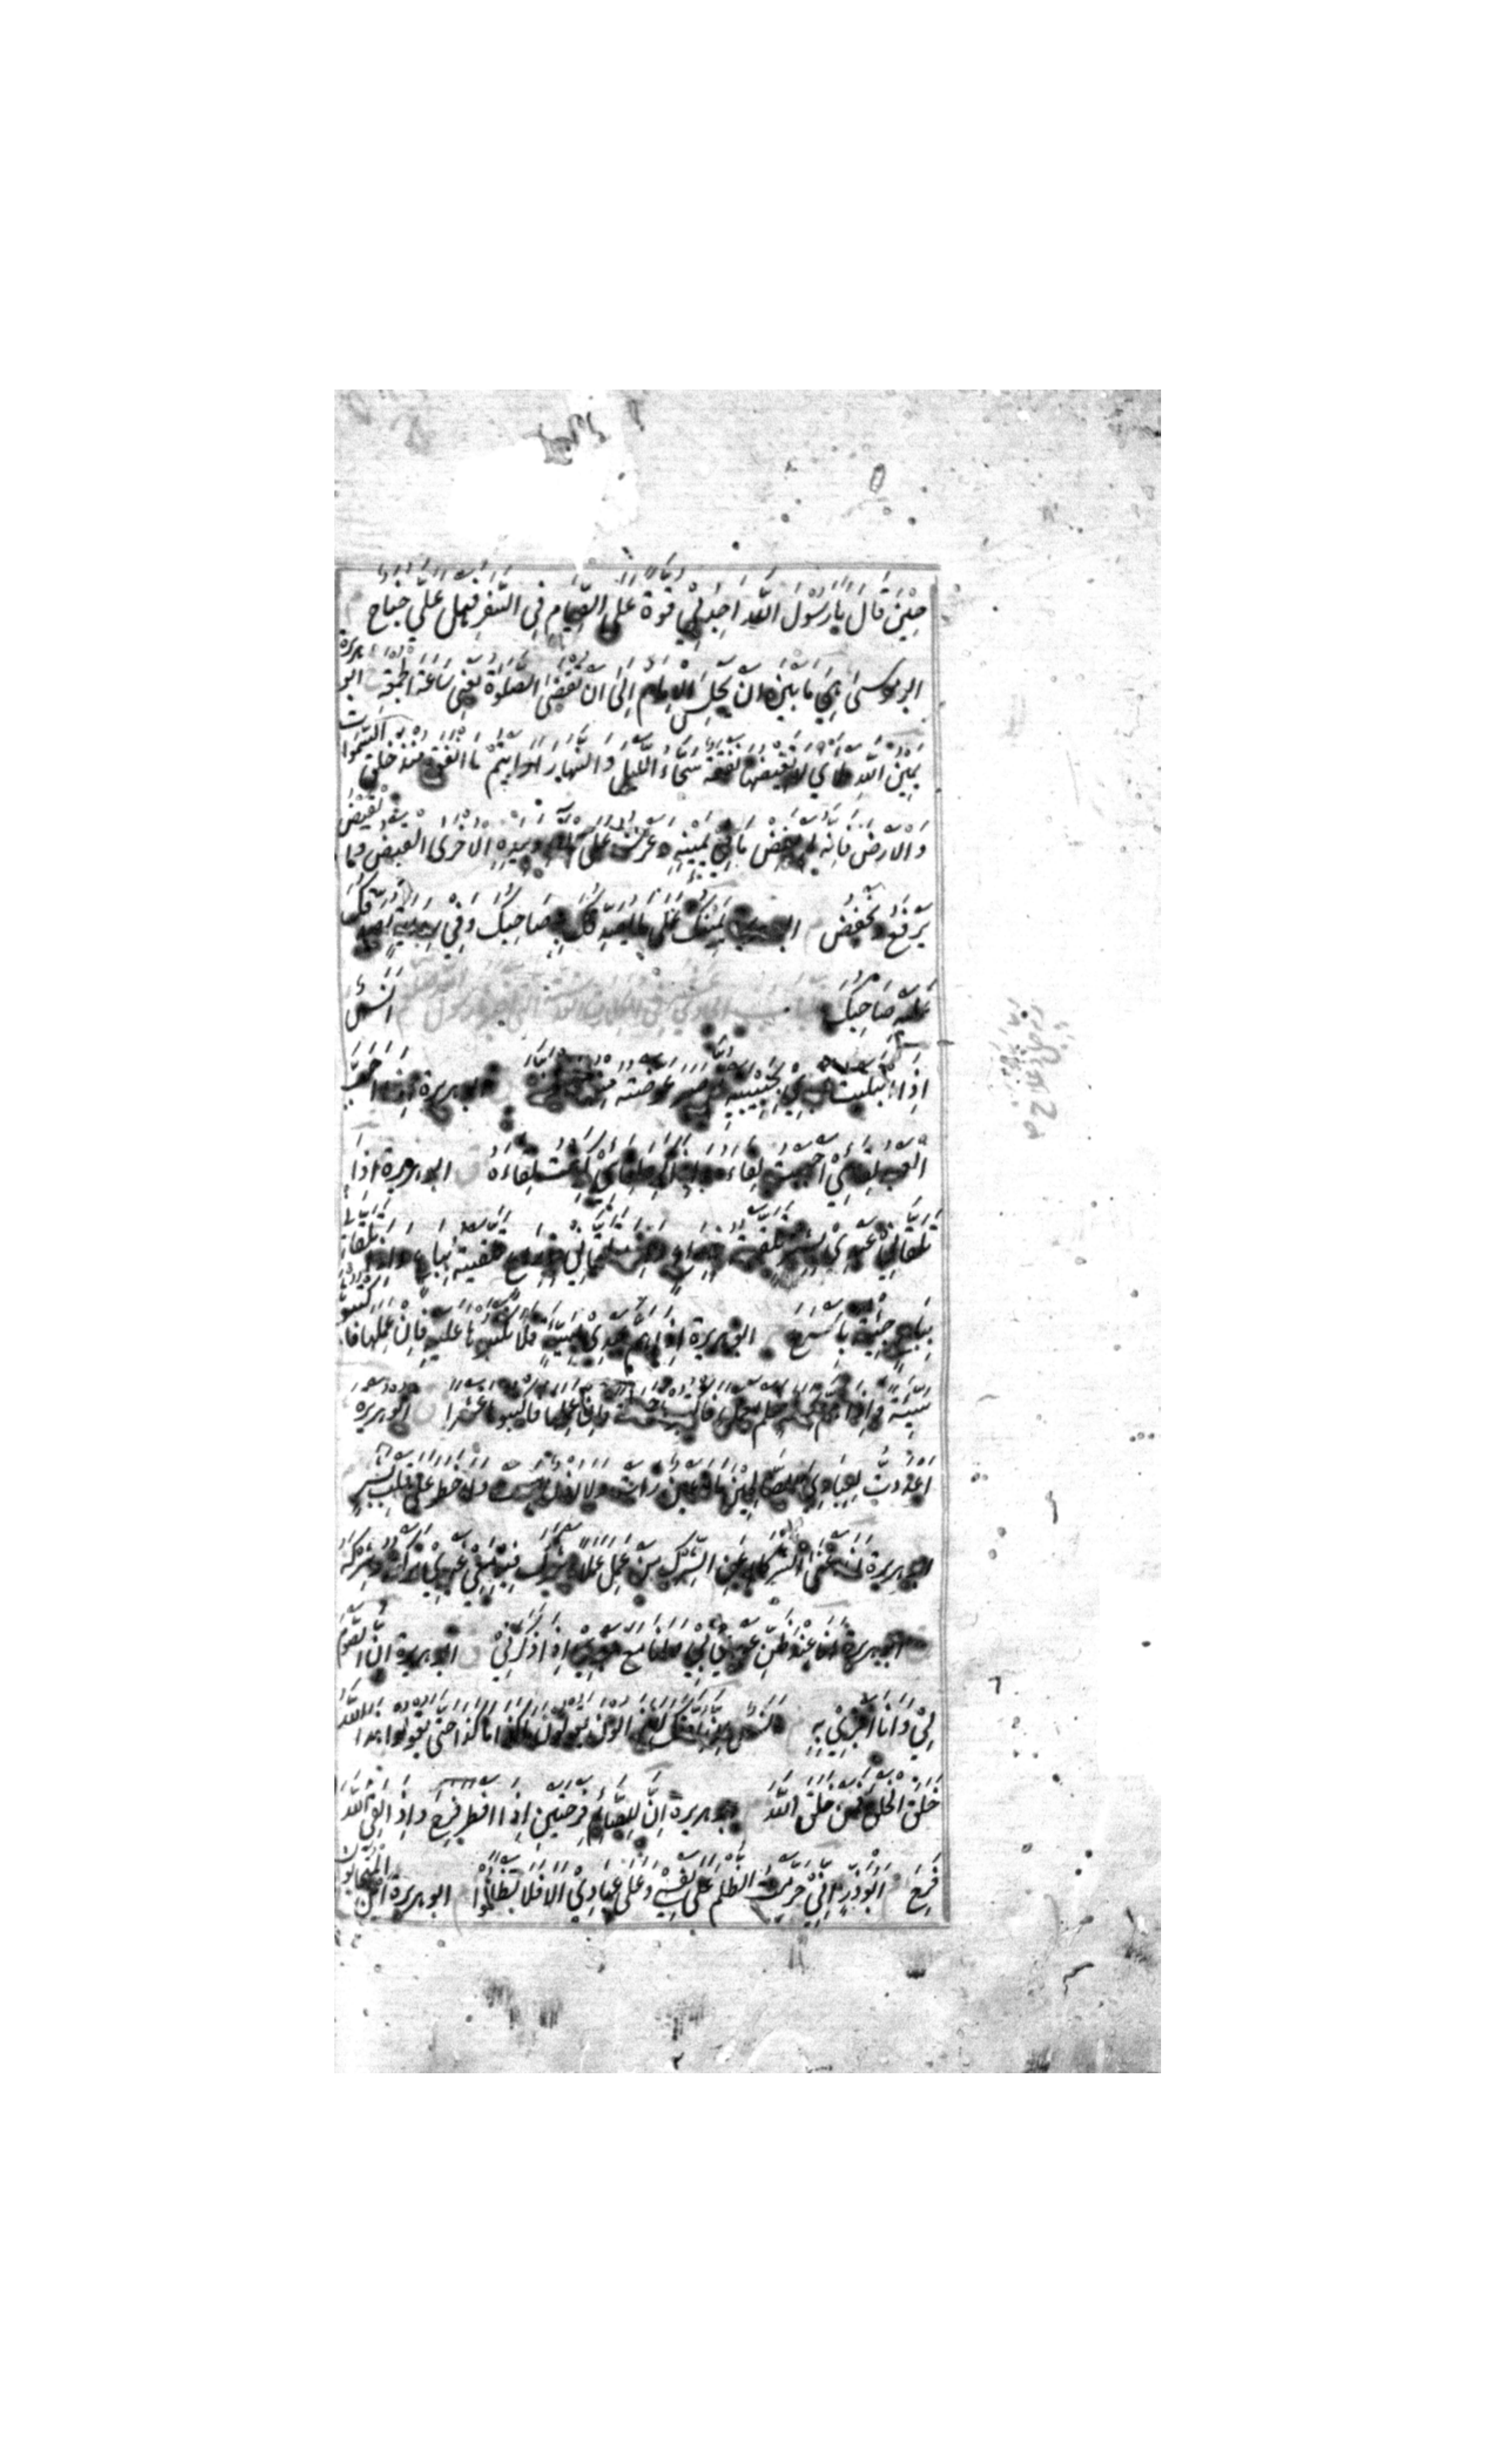 حِيْنَ قَالَ يَا رَسُوْلَ اللّٰهِ اَجِدُ بِيْ قُوَّةً عَلَى الصِّيَامِ فِي السَّفَرِ فَهَلْ عَلَيَّ جُنَاحٌ
ابو موسى هِيَ مَا بَيْنَ اَنْ يَّجْلِسَ الْاِمَامُ اِلٰى اَنْ تُقْضَى الصَّلٰوةُ يَعْنِي سَاعَةَ الْجُمُعَةِ ابو هريرة
يَمِيْنُ اللّٰهِ مَلْأى لَا تَغِيْضُهَا نَفَقَةٌ سَحَّاءُ اللَّيْلَ وَالنَّهَارَ اَرَاَيْتُمْ مَا اَنْفَقَ مُنْذُ خَلَقَ السَّمٰوَاتِ
وَالْاَرْضَ فَاِنَّهُ لَمْ يَغِضْ مَا فِيْ يَمِيْنِهِ وَعَرْشُهُ عَلَى الْمَاءِ وَبِيَدِهِ الْاُخْرٰى الْقَبْضُ
يَرْفَعُ وَيَخْفِضُ يَمِيْنُكَ عَلٰى مَا يُصَدِّقُكَ بِهِ صَاحِبُكَ وَفِيْ رِوَايَةٍ
عَلَيْهِ صَاحِبُكَ اَنَسٌ
اِذَا ابْتَلَيْتُ عَبْدِيْ بِحَبِيْبَتَيْهِ ثُمَّ صَبَرَ عَوَّضْتُهُ مِنْهُمَا ابو هريرة اِذَا اَحَبَّ
الْعَبْدُ لِقَائِيْ اَحْبَبْتُ لِقَاءَهُ وَاِذَا كَرِهَ لِقَائِيْ كَرِهْتُ لِقَاءَهُ ابو هريرة اِذَا
تَلَقَّانِيْ عَبْدِيْ بِشِبْرٍ تَلَقَّيْتُهُ بِذِرَاعٍ وَاِذَا تَلَقَّانِيْ بِذِرَاعٍ تَلَقَّيْتُهُ بِبَاعٍ وَاِذَا تَلَقَّانِيْ
بِبَاعٍ جِئْتُهُ بِاَسْرَعَ ابو هريرة اِذَا هَمَّ عَبْدِيْ بِسَيِّئَةٍ فَلَا تَكْتُبُوْهَا عَلَيْهِ فَاِنْ عَمِلَهَا فَاكْتُبُوْهَا
سَيِّئَةً وَاِذَا هَمَّ بِحَسَنَةٍ فَلَمْ يَعْمَلْهَا فَاكْتُبُوْهَا حَسَنَةً فَاِنْ عَمِلَهَا فَاكْتُبُوْهَا عَشْرًا ابو هريرة
اَعْدَدْتُ لِعِبَادِيَ الصَّالِحِيْنَ مَا لَا عَيْنٌ رَاَتْ وَلَا اُذُنٌ سَمِعَتْ وَلَا خَطَرَ عَلٰى قَلْبِ بَشَرٍ
ابو هريرة اَنَا اَغْنَى الشُّرَكَاءِ عَنِ الشِّرْكِ مَنْ عَمِلَ عَمَلًا اَشْرَكَ فِيْهِ مَعِيْ غَيْرِيْ تَرَكْتُهُ وَشِرْكَهُ
ابو هريرة اَنَا عِنْدَ ظَنِّ عَبْدِيْ بِيْ وَاَنَا مَعَ عَبْدِيْ اِذَا ذَكَرَنِيْ ابو هريرة اِنَّ الصَّوْمَ
لِيْ وَاَنَا اَجْزِيْ بِهِ اَنَسٌ اِنَّ اُمَّتَكَ لَا يَزَالُوْنَ يَقُوْلُوْنَ مَا كَذَا مَا كَذَا حَتّٰى يَقُوْلُوْا هٰذَا اللّٰهُ
خَلَقَ الْخَلْقَ فَمَنْ خَلَقَ اللّٰهَ ابو هريرة اِنَّ لِلصَّائِمِ فَرْحَتَيْنِ اِذَا اَفْطَرَ فَرِحَ وَاِذَا لَقِيَ اللّٰهَ
فَرِحَ اَبُوْ ذَرٍّ اِنِّيْ حَرَّمْتُ الظُّلْمَ عَلٰى نَفْسِيْ وَعَلٰى عِبَادِيْ اَلَا فَلَا تَظَالَمُوْا ابو هريرة اَيْنَ الْمُتَحَابُّوْنَ